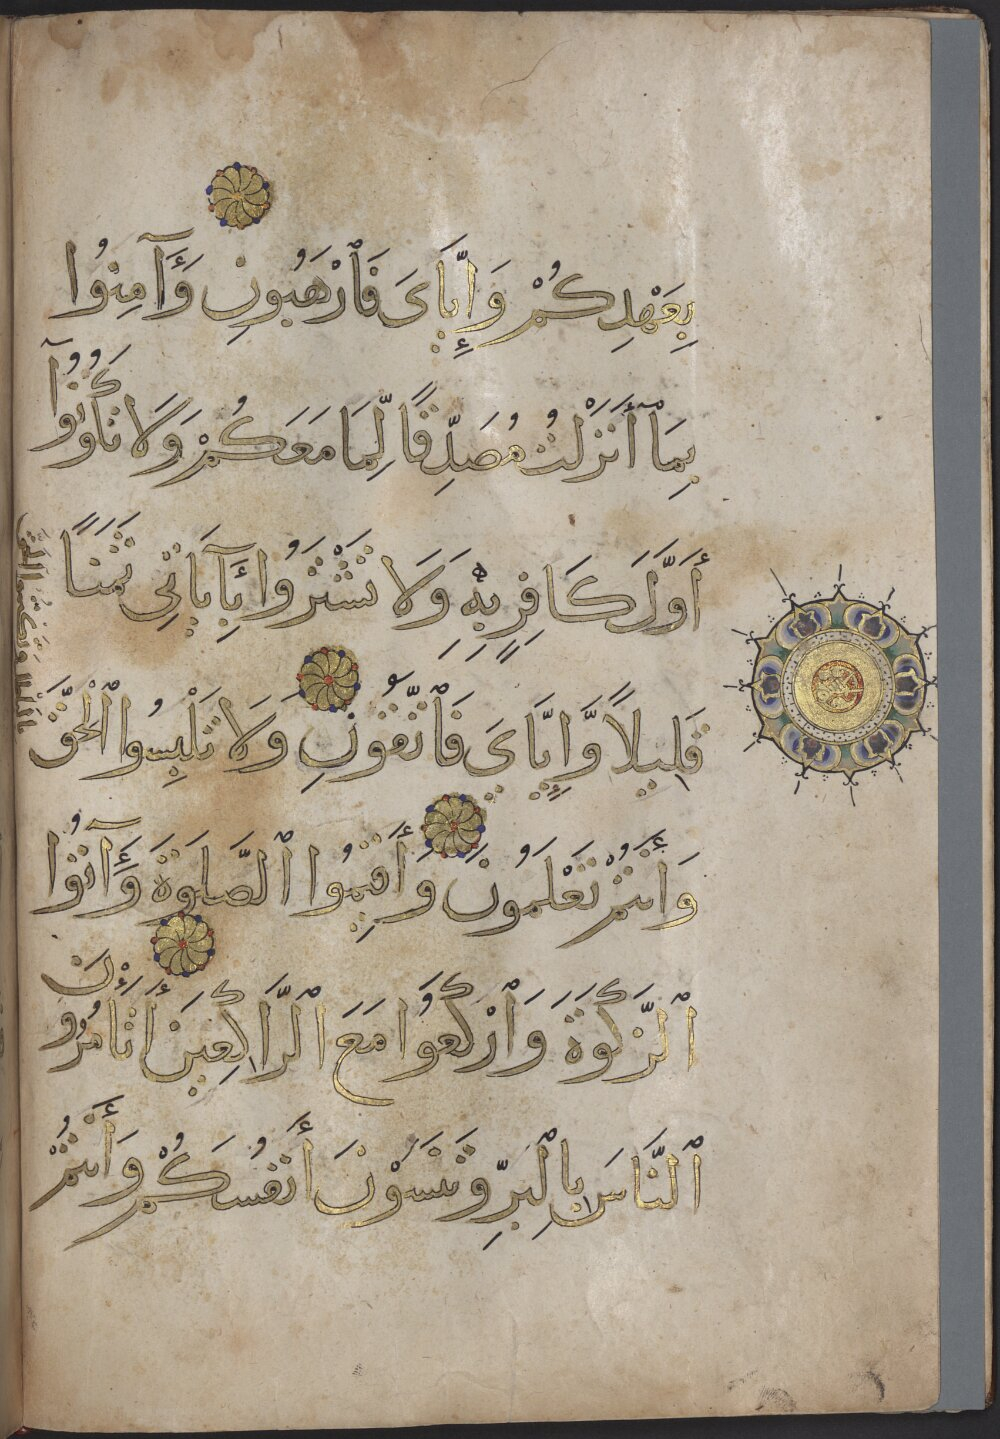 بِعَهْدِكُمْ وَإِيَّايَ فَٱرْهَبُونِ وَءَآمِنُوا
بِمَآ أَنزَلْتُ مُصَدِّقًا لِّمَا مَعَكُمْ وَلَا تَكُونُوٓا
أَوَّلَ كَافِرٍ بِهِ وَلَا تَشْتَرُوا بِـَٔآيَاتِي ثَمَنًا
قَلِيلًا وَّإِيَّايَ فَٱتَّقُونِ وَلَا تَلْبِسُوا ٱلْحَقَّ
بالباطل وتكتموا الحق
وَأَنتُمْ تَعْلَمُونَ وَأَقِيمُوا ٱلصَّلَوٰةَ وَءَآتُوا
ٱلزَّكَوٰةَ وَٱرْكَعُوا مَعَ ٱلرَّاكِعِينَ أَتَأْمُرُونَ
ٱلنَّاسَ بِٱلْبِرِّ وَتَنسَوْنَ أَنفُسَكُمْ وَأَنتُمْ